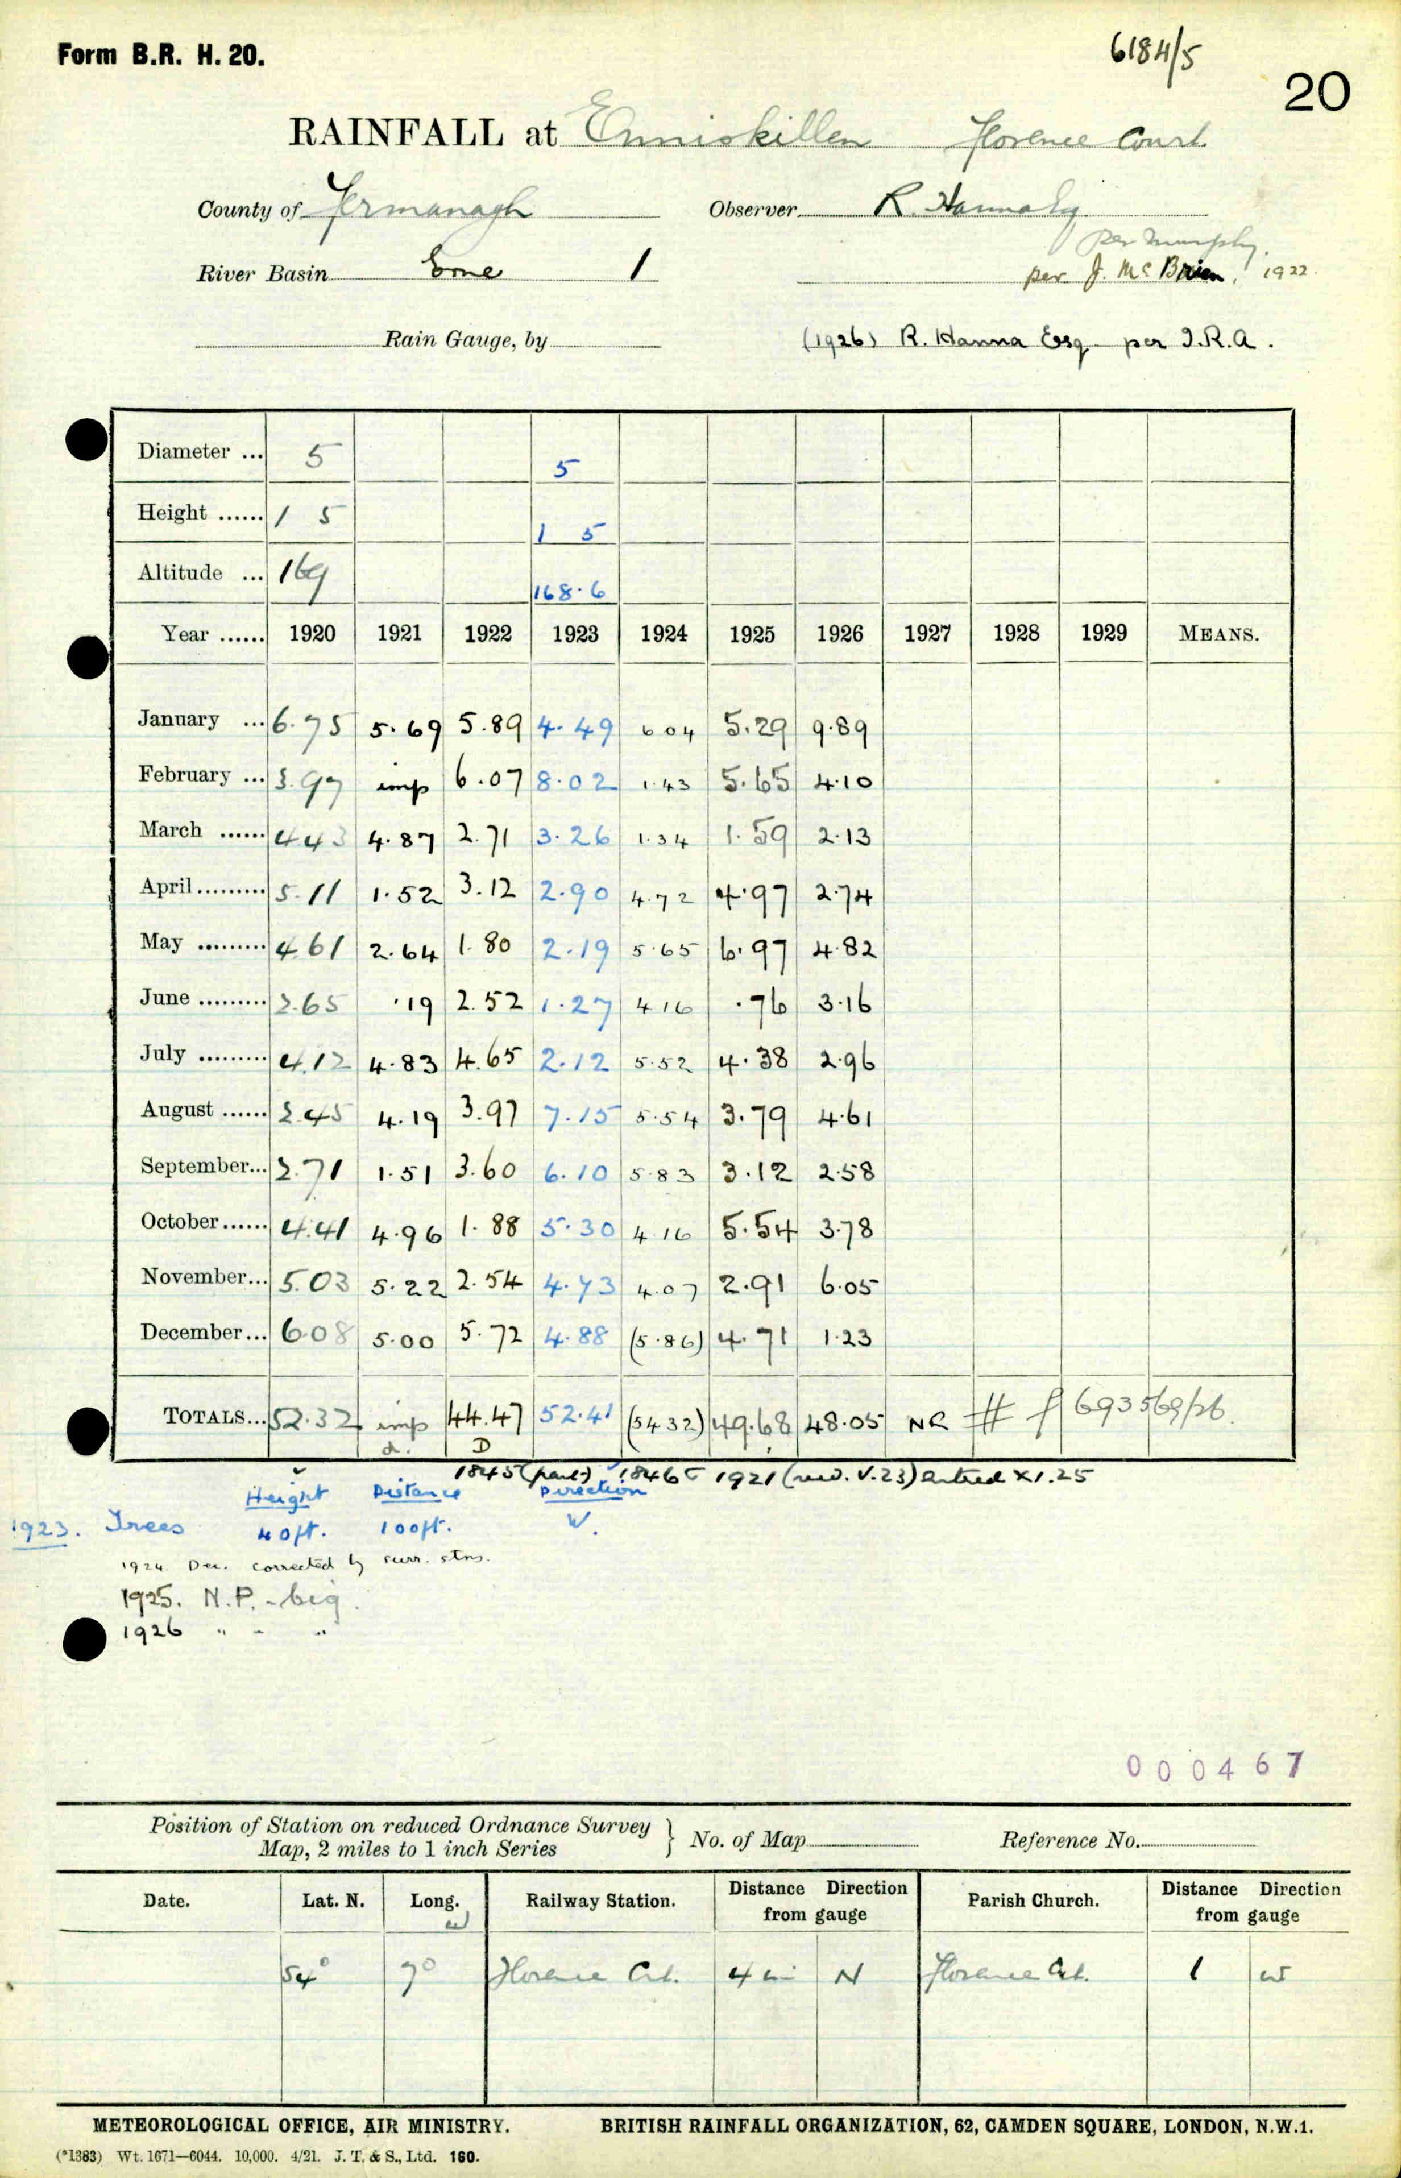 Form B.R. H. 20.
6184/5
20
RAINFALL at Enniskillen Florence Court
County of Fermanagh Observer R. Hanna Esq
per Murphy.
River Basin Erne 1 per J. McBrien, 1922.
Rain Gauge, by (1926) R. Hanna Esq. per I.R.A.
Diameter ... 5 5
Height ...... 1 5 1 5
Altitude ... 169 168.6
Year ...... 1920 1921 1922 1923 1924 1925 1926 1927 1928 1929 MEANS.
January ... 6.75 5.69 5.89 4.49 6 04 5.29 9.89
February ... 3.97 imp 6.07 8.02 1.43 5.65 4.10
March ...... 4.43 4.87 2.71 3.26 1.34 1.59 2.13
April ......... 5.11 1.52 3.12 2.90 4.72 4.97 2.74
May ......... 4.61 2.64 1.80 2.19 5.65 6.97 4.82
June ......... 2.65 .19 2.52 1.27 4 16 .76 3.16
July ......... 4.12 4.83 4.65 2.12 5.52 4.38 2.96
August ...... 2.45 4.19 3.97 7.15 5.54 3.79 4.61
September... 2.71 1.51 3.60 6.10 5.83 3.12 2.58
October...... 4.41 4.96 1.88 5.30 4 16 5.54 3.78
November... 5.03 5.22 2.54 4.73 4.07 2.91 6.05
December... 6.08 5.00 5.72 4.88 (5.86) 4.71 1.23
TOTALS... 52.32 imp 44.47 52.41 (54 32) 49.68 48.05 NR # f 693569/26.
a. D
1845 (part) 1846 1921 (rec. V.23) Entred x 1.25
Height Distance Direction
1923. Trees 40ft. 100ft. W.
1924 Dec. corrected by surr. stns.
1925. N.P. - big.
1926 " - "
0 0 0 4 6 7
Position of Station on reduced Ordnance Survey Map, 2 miles to 1 inch Series } No. of Map Reference No.
Date. Lat. N. Long. W Railway Station. Distance Direction from gauge Parish Church. Distance Direction from gauge
54° 7° Florence Crt. 4 m N Florence Crt. 1 W
METEOROLOGICAL OFFICE, AIR MINISTRY. BRITISH RAINFALL ORGANIZATION, 62, CAMDEN SQUARE, LONDON, N.W.1.
(*1383) Wt. 1671—6044. 10,000. 4/21. J. T. & S., Ltd. 160.